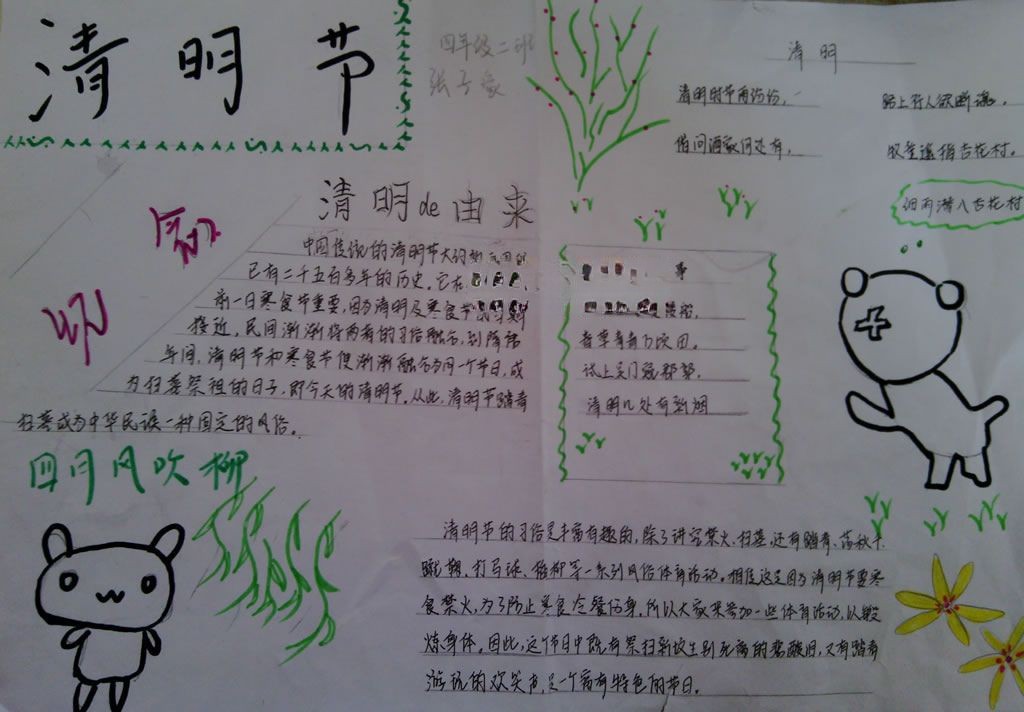 清明节
四年级二班
张子豪
清明
清明时节雨纷纷，
路上行人欲断魂。
借问酒家何处有，
牧童遥指杏花村。
细雨潜入杏花村
清明de由来
中国传统的清明节大约
已有二千五百多年的历史。它在
前一日寒食节重要，因为清明及寒食节
接近，民间渐渐将两者的习俗融合，到隋唐
年间，清明节和寒食节便渐渐融合为同一个节日，成
为扫墓祭祖的日子，即今天的清明节。从此，清明节踏青
扫墓成为中华民族一种固定的风俗。
春草青青万顷田。
试上吴门窥郡郭，
清明几处有新烟
四月风吹柳
清明节的习俗是丰富有趣的，除了讲究禁火、扫墓，还有踏青、荡秋千、
蹴鞠、打马球、插柳等一系列风俗体育活动。相传这是因为清明节要寒
食禁火，为了防止寒食冷餐伤身，所以大家来参加一些体育活动，以锻
炼身体。因此，这个节日中既有祭扫新坟生别死离的悲酸泪，又有踏青
游玩的欢笑声，是一个富有特色的节日。